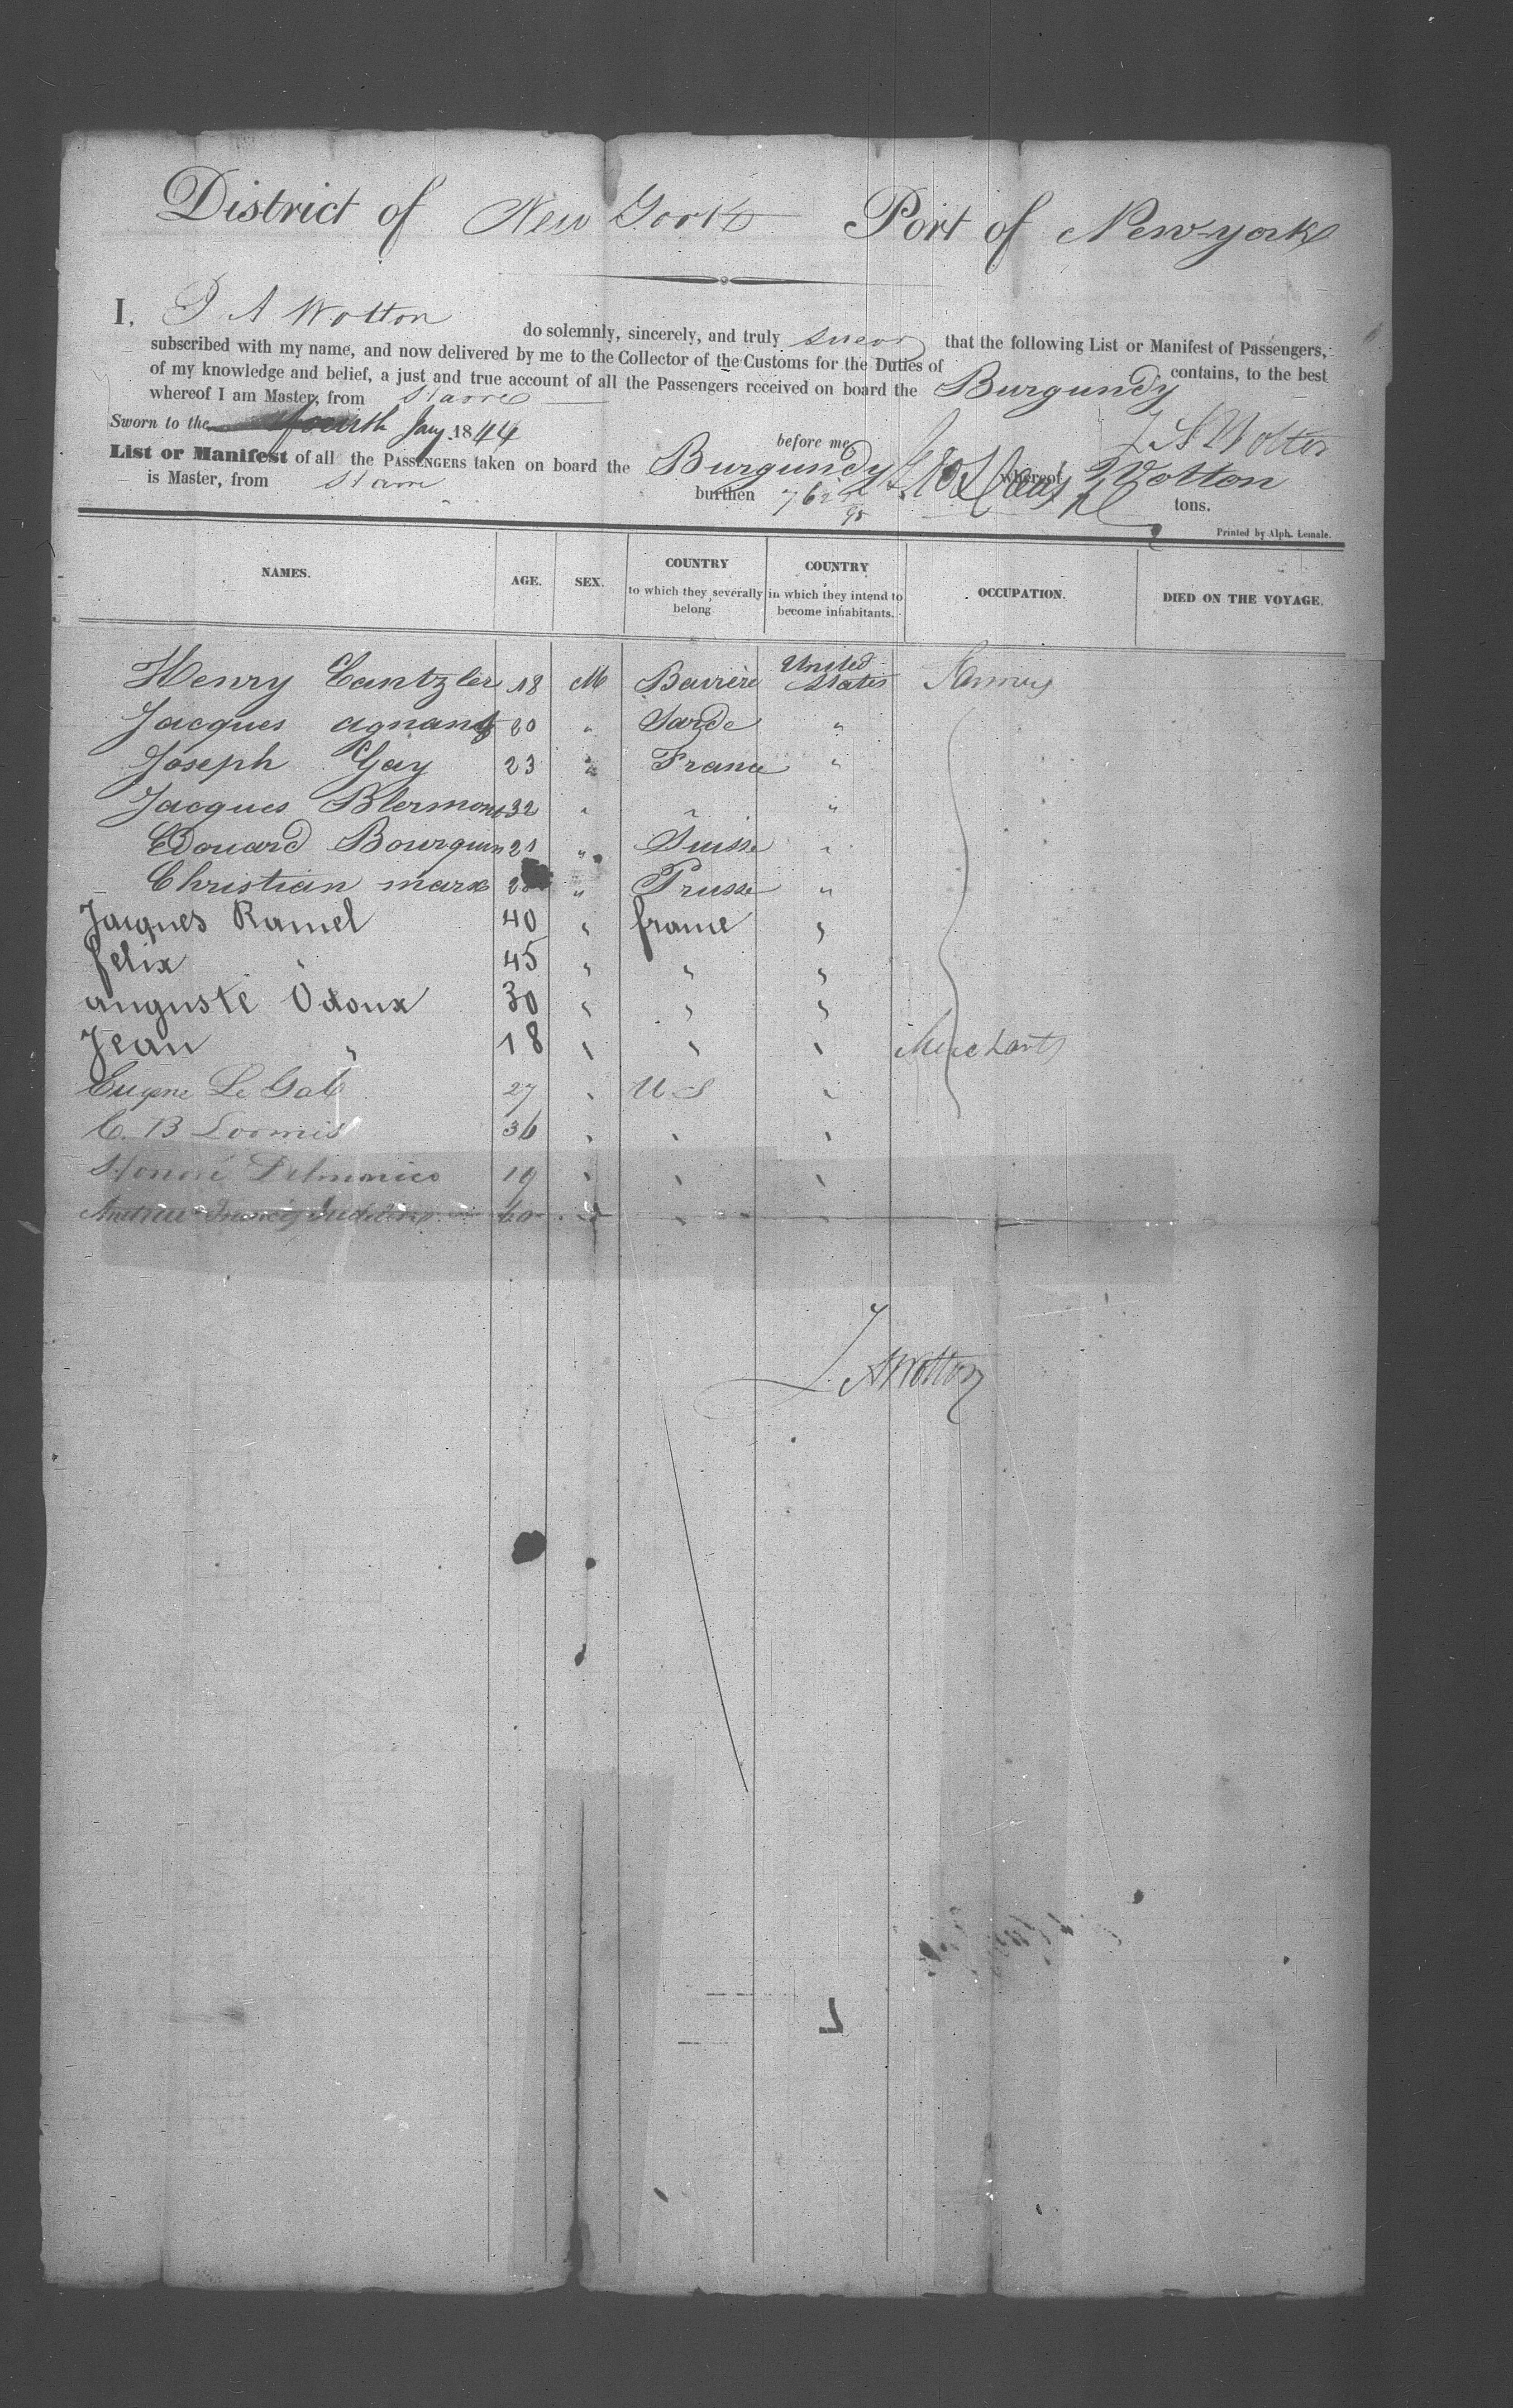 District of New York Port of New-york
I, J A Wotton do solemnly, sincerely, and truly swear that the following List or Manifest of Passengers,
subscribed with my name, and now delivered by me to the Collector of the Customs for the Duties of contains, to the best
of my knowledge and belief, a just and true account of all the Passengers received on board the Burgundy
whereof I am Master, from Havre
Sworn to the fourth Jany 1844 before me J A Wotton
List or Manifest of all the PASSENGERS taken on board the Burgundy whereof Wotton
is Master, from Havre burthen 762 /95 tons.
Printed by Alph. Lemale.
NAMES. AGE. SEX. COUNTRY to which they severally belong. COUNTRY in which they intend to become inhabitants. OCCUPATION. DIED ON THE VOYAGE.
Henry Cantzler 18 M Bavière United States Farmers
Jacques agnant 20 " Sarde "
Joseph Gay 23 " France "
Jacques Blermont 32 " " "
Edouard Bourquin 21 " Suisse "
Christian marx " Prusse "
Jacques Ramel 40 " france "
felix " 45 " " "
auguste Odoux 30 " " "
Jean " 18 " " " Merchants
Eugene Le Gal 27 " U S "
C. B Loomis 36 " " "
Honoré Delmonico 19 " " "
Francis 60 " " "
J. A Wotton